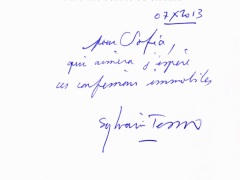 07X2013
pour Sofia,
qui aimera j'espère
ces confessions immobiles
Sylvain Tesson